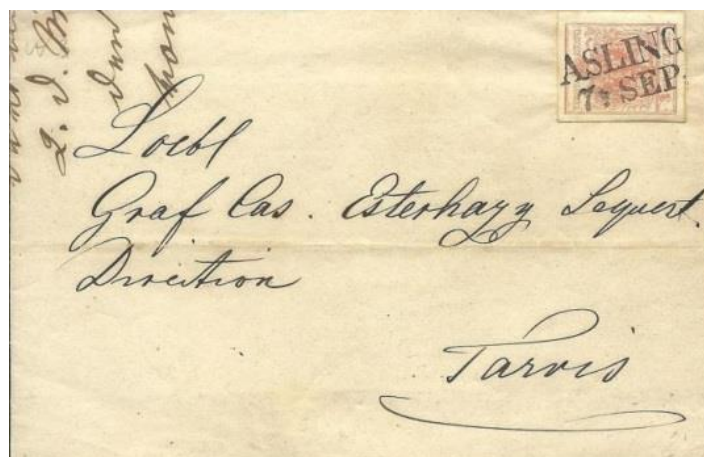 ASLING
7. SEP.
Loebl
Graf Cas. Esterhazy Sequest.
Direction
Tarvis